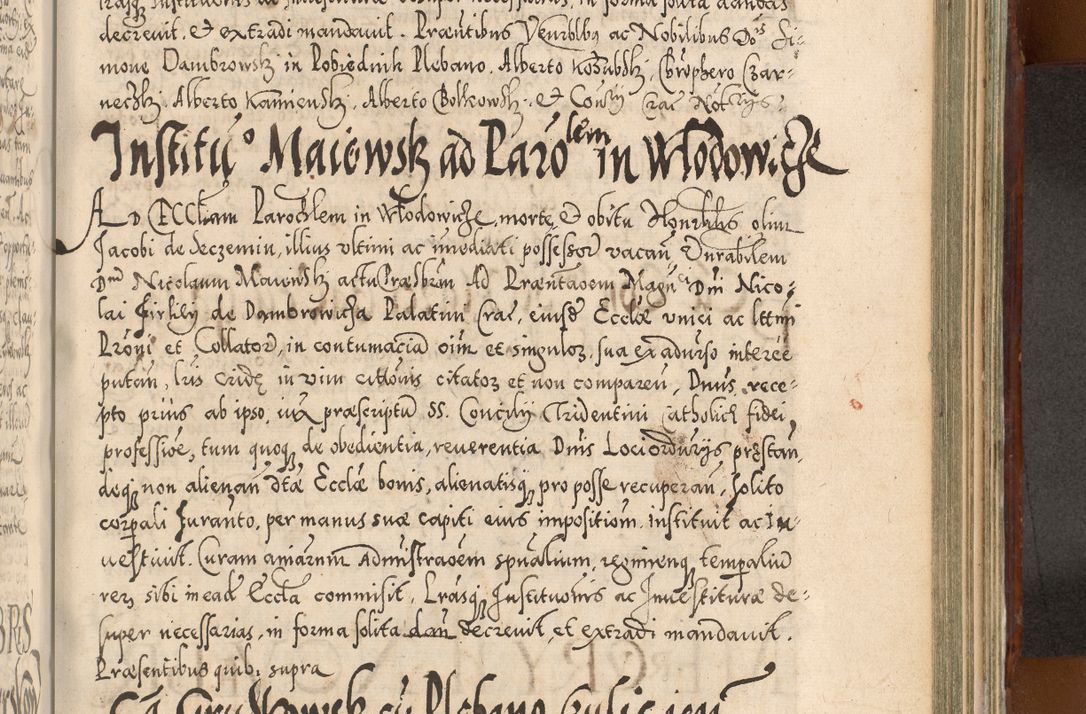 decrevit. et extradi mandavit. Præntibus Venrblbꝫ ac Nobilibus Dōs Si-
mone Dambrowsky in Pobiednik Plebano. Alberto Kozubsky, Chrophero Czar-
necky. Alberto Kamiensky, Alberto Bolkowsky. et Coury Crac Notrys.
Institūo Maiowsky ad Parōlem in Włodowicze
Ad Ecclīam Parochlem in Włodowicze, morte et obitu Honrblis olim
Jacobi de Seczemin, illius ultimi ac imediati possessor vacan Venrabilem
Dnū Nicolaum Maiowsky actu Præsbrūm Ad Præntaōem Magci Dni Nico-
lai Firley de Dambrowicza Palatini Crac, eiusdē Ecclæ unici ac lttmi
Prōni et Collator, in contumaciā oim et singulor, sua ex adurso interēē
putan, lris cridę in vim citōnis citator et non comparen, Dnus rece-
pto prius ab ipso, iux præscriptū SS. Concilij Tridentini Catholicę fidei
professiōe, tum quoqꝫ de obedientia, reverentia Dnis Loci Ordinrys præstan,
deqꝫ non alienan dtæ Ecclæ bonis, alienatisqꝫ pro posse recuperan, solito
corpali Juranto, per manus suæ capiti eius impositiom, instituit ac in-
vestivit. Curam aniarum Admistraōem spualium, regimenqꝫ tempalium
rer sibi in ead Eccta commisit. Lrasqꝫ Institutonis ac Investituræ de-
super necessarias, in forma solita dan decrevit, et extradi mandavit.
Præsentibus quib: supra